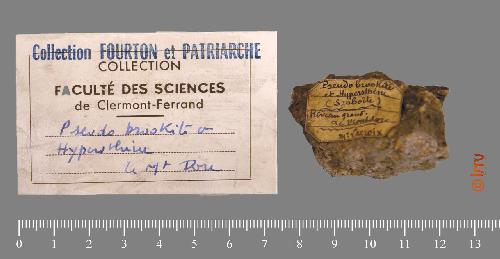 Collection FOURTON et PATRIARCHE
COLLECTION
FACULTÉ DES SCIENCES
de Clermont-Ferrand
Pseudo brookite et
Hypersthène
le Mt Dore
Pseudobrookite
et Hypersthène
(Szaboite)
0 1 2 3 4 5 6 7 8 9 10 11 12 13